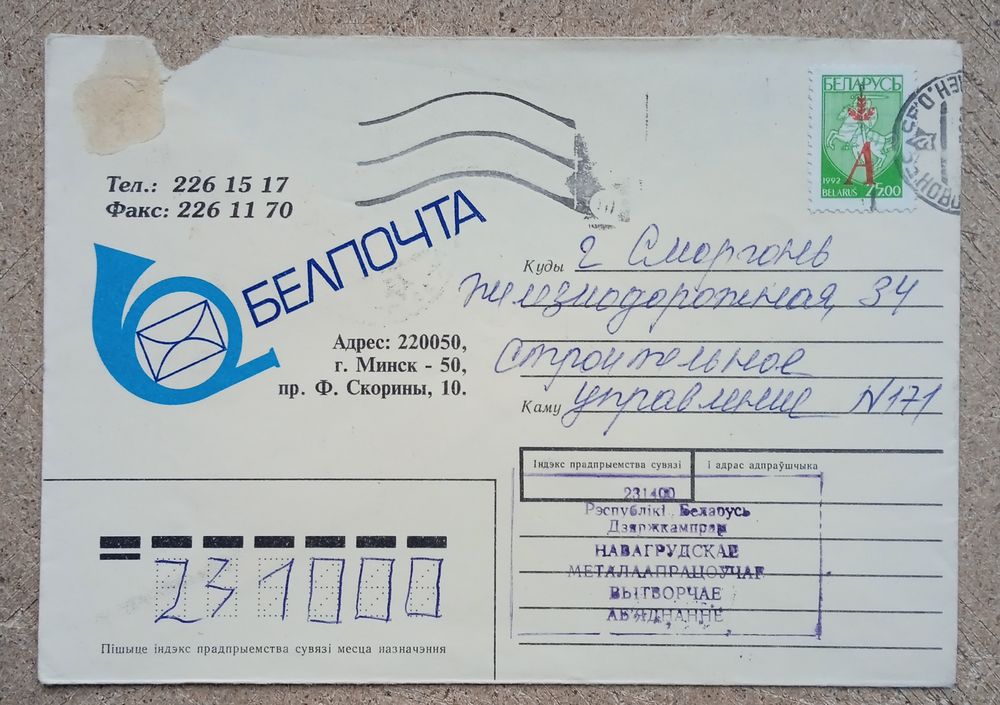 Тел.: 226 15 17
Факс: 226 11 70
БЕЛПОЧТА
Адрес: 220050,
г. Минск - 50,
пр. Ф. Скорины, 10.
БЕЛАРУСЬ
А
1992
BELARUS 25.00
Куды г Сморгонь
Железнодорожная, 34
Строительное
Каму управление N171
Індэкс прадпрыемства сувязі
І адрас адпраўшчыка
231400
Рэспублікі Беларусь
Дзяржкампрам
НАВАГРУДСКАЕ
МЕТАЛААПРАЦОУЧАЕ
ВЫТВОРЧАЕ
АБ'ЯДНАННЕ
231000
Пішыце індэкс прадпрыемства сувязі месца назначэння